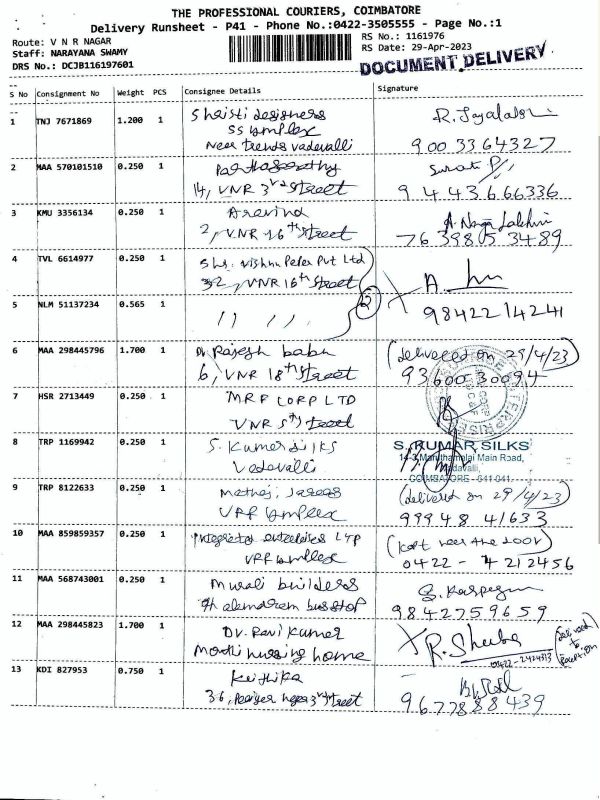 THE PROFESSIONAL COURIERS, COIMBATORE
Delivery Runsheet - P41 - Phone No.:0422-3505555 - Page No.:1
Route: V N R NAGAR
Staff: NARAYANA SWAMY
DRS No.: DCJB116197601
RS No.: 1161976
RS Date: 29-Apr-2023
DOCUMENT DELIVERY
S No Consignment No Weight PCS Consignee Details Signature
1 TNJ 7671869 1.200 1 Shristi designers R. Jayalakshi
SS complex
Near trends vadavalli 900 3364327
2 MAA 570101510 0.250 1
14, VNR 3rd street 94436 66336
3 KMU 3356134 0.250 1 Aravind A. Naga Lakshmi
2, VNR 16th street 76 39805 3489
4 TVL 6614977 0.250 1 Shri. Vishnu Peter Pvt Ltd
32, VNR 16th street
2
5 NLM 51137234 0.565 1 " " 98422 14241
6 MAA 298445796 1.700 1 Dr Rajesh babu (delivered on 29/4/23)
6, VNR 18th street 93600 30094
7 HSR 2713449 0.250 1 MRF CORP LTD
VNR 5th street
8 TRP 1169942 0.250 1 S. Kumar silks S. KUMAR SILKS
Vadavalli 14-3, Maruthamalai Main Road,
Vadavalli,
COIMBATORE - 641 041.
9 TRP 8122633 0.250 1 (delivered on 29/4/23)
VRR complex 99948 41633
10 MAA 859859357 0.250 1 Integrated enterprises LTD (kept near the door)
VRR complex 0422- 4212456
11 MAA 568743001 0.250 1 Murali builders
bus stop 9842759659
12 MAA 298445823 1.700 1 Dr. Ravi Kumar R. Sheeba (delivered to reception)
Modhi nursing home 0422-2424313
13 KDI 827953 0.750 1 Keithika
36, Periyar nagar 3rd street 9677888439